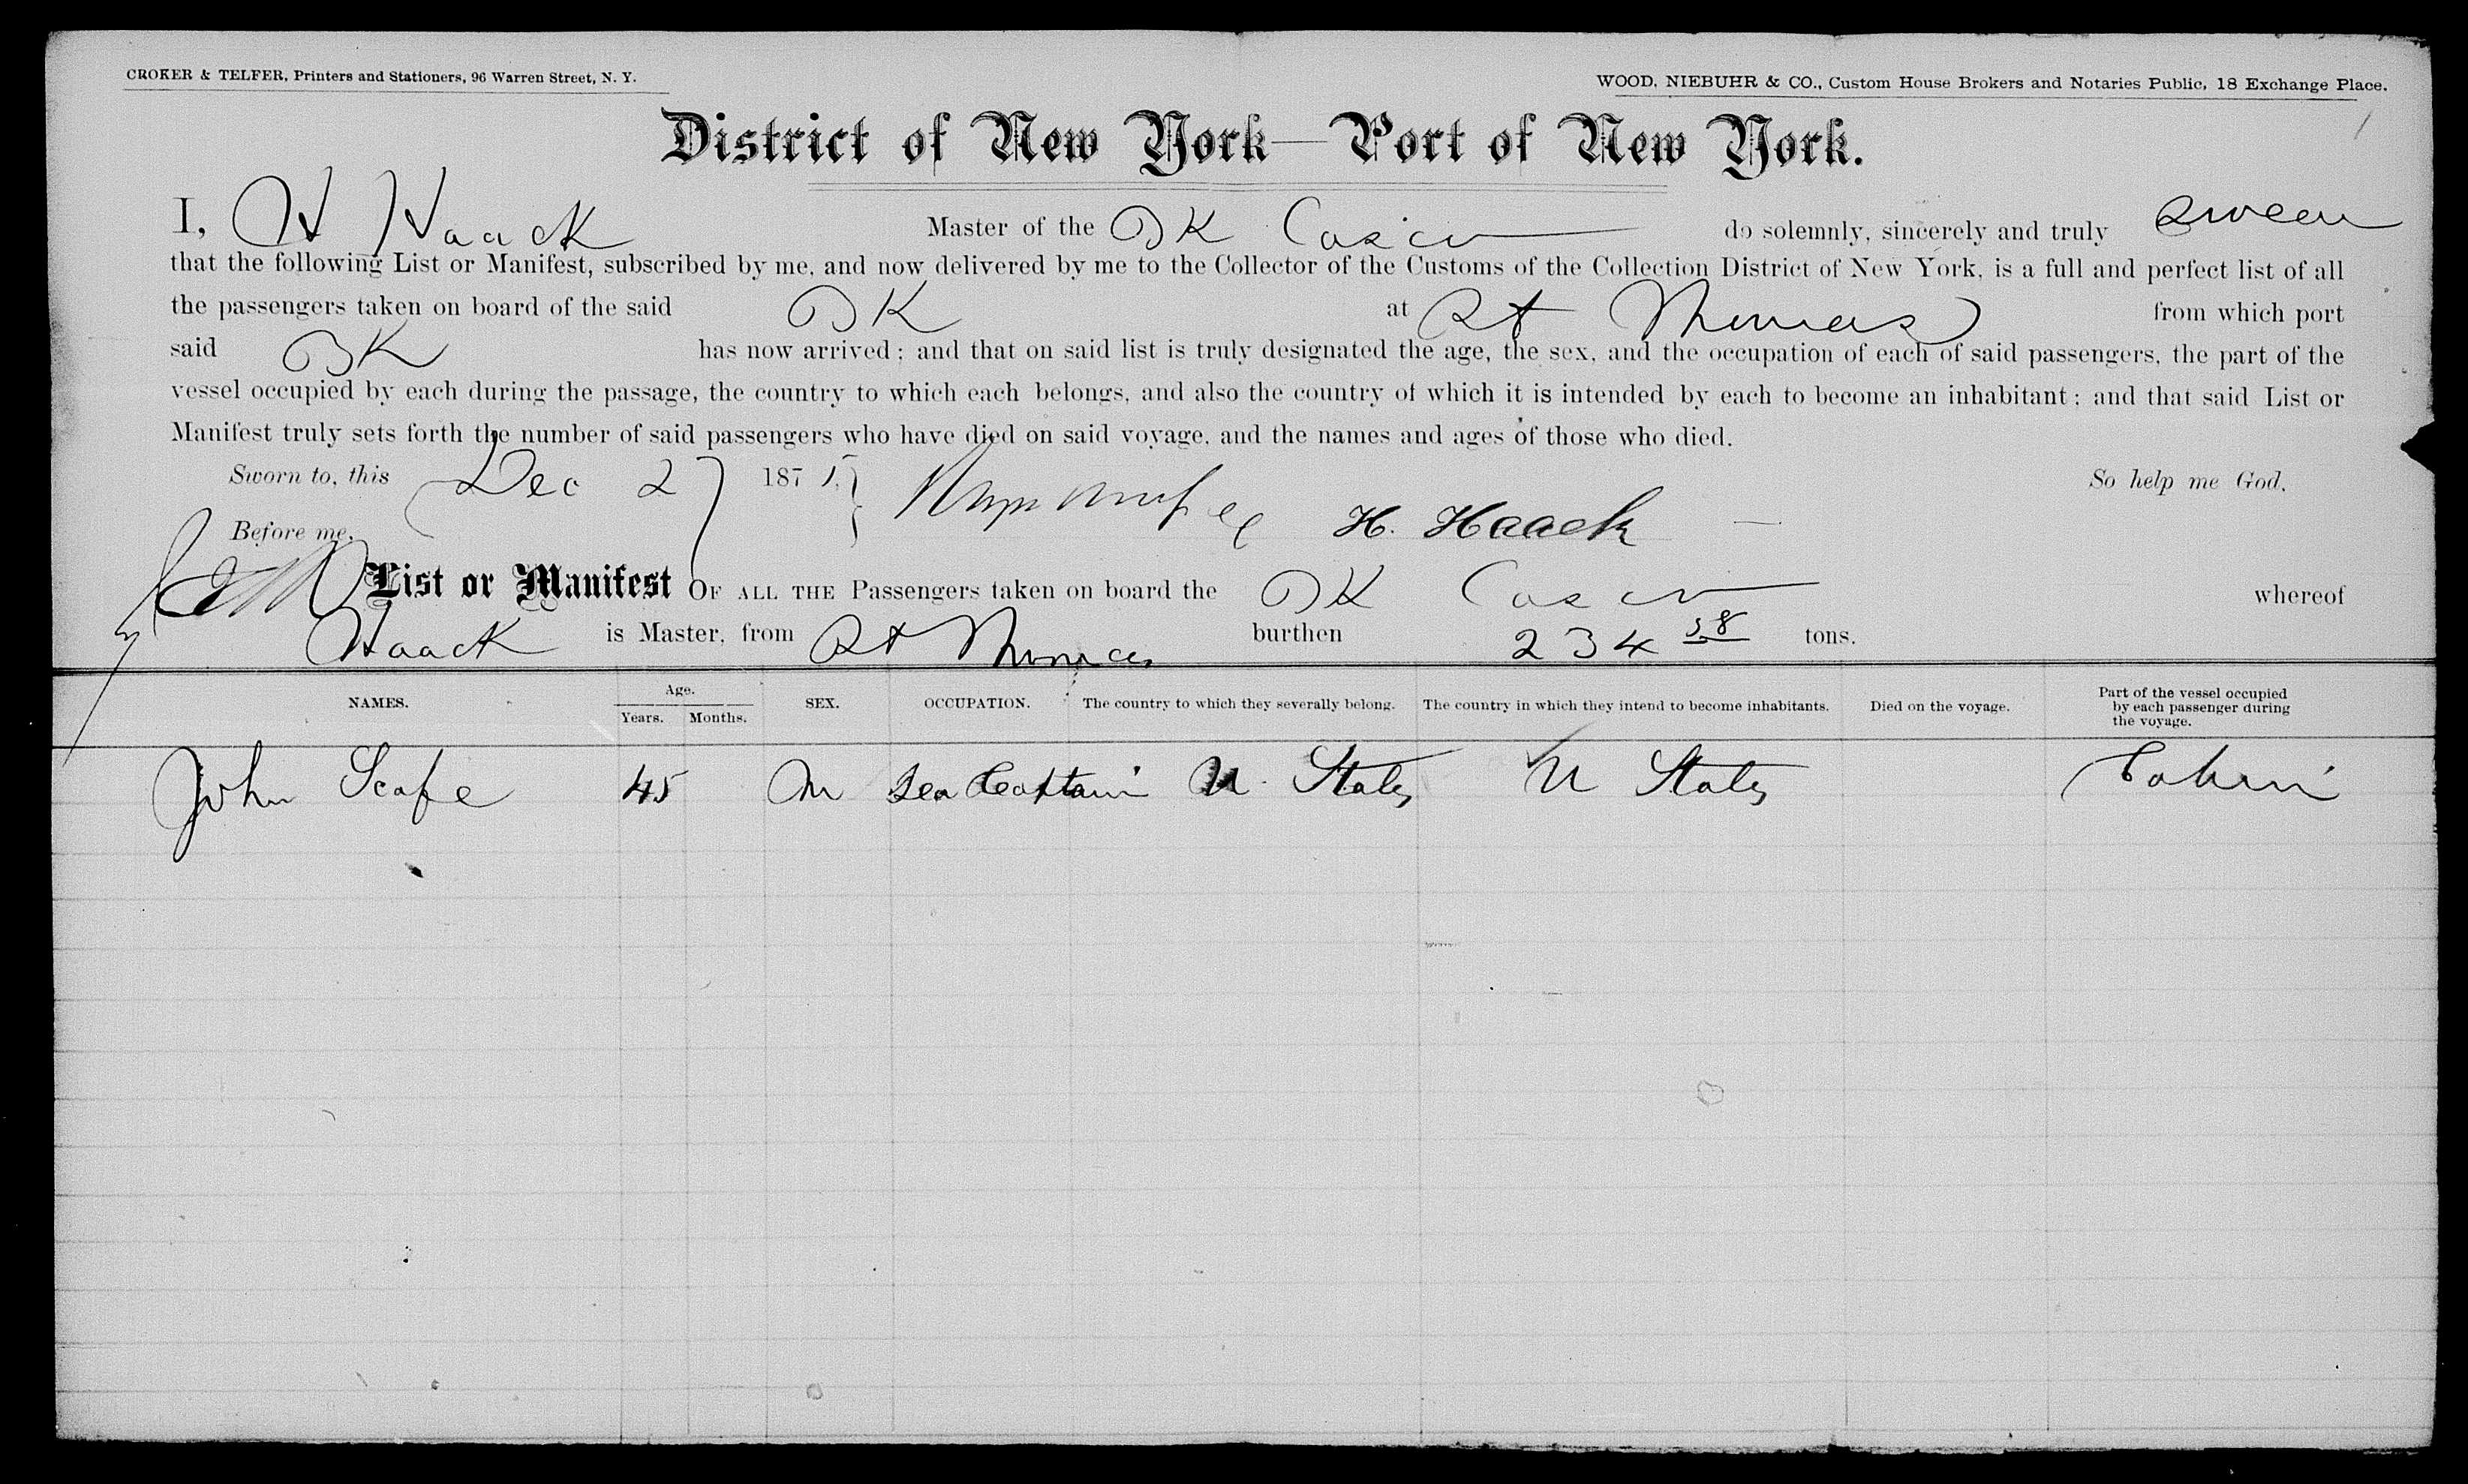 CROKER & TELFER, Printers and Stationers, 96 Warren Street, N. Y.
WOOD, NIEBUHR & CO., Custom House Brokers and Notaries Public, 18 Exchange Place.
District of New York—Port of New York.
I, H Haack Master of the BK do solemnly, sincerely and truly swear
that the following List or Manifest, subscribed by me, and now delivered by me to the Collector of the Customs of the Collection District of New York, is a full and perfect list of all
the passengers taken on board of the said BK at St Thomas from which port
said BK has now arrived; and that on said list is truly designated the age, the sex, and the occupation of each of said passengers, the part of the
vessel occupied by each during the passage, the country to which each belongs, and also the country of which it is intended by each to become an inhabitant; and that said List or
Manifest truly sets forth the number of said passengers who have died on said voyage, and the names and ages of those who died.
Sworn to, this Dec 27 187 So help me God.
Before me, H. Haack
List or Manifest OF ALL THE Passengers taken on board the BK whereof
Haack is Master, from St Thomas burthen 234 58 tons.
NAMES. Age. Years. Months. SEX. OCCUPATION. The country to which they severally belong. The country in which they intend to become inhabitants. Died on the voyage. Part of the vessel occupied by each passenger during the voyage.
John Scafe 45 M Sea Captain U. States U States Cabin